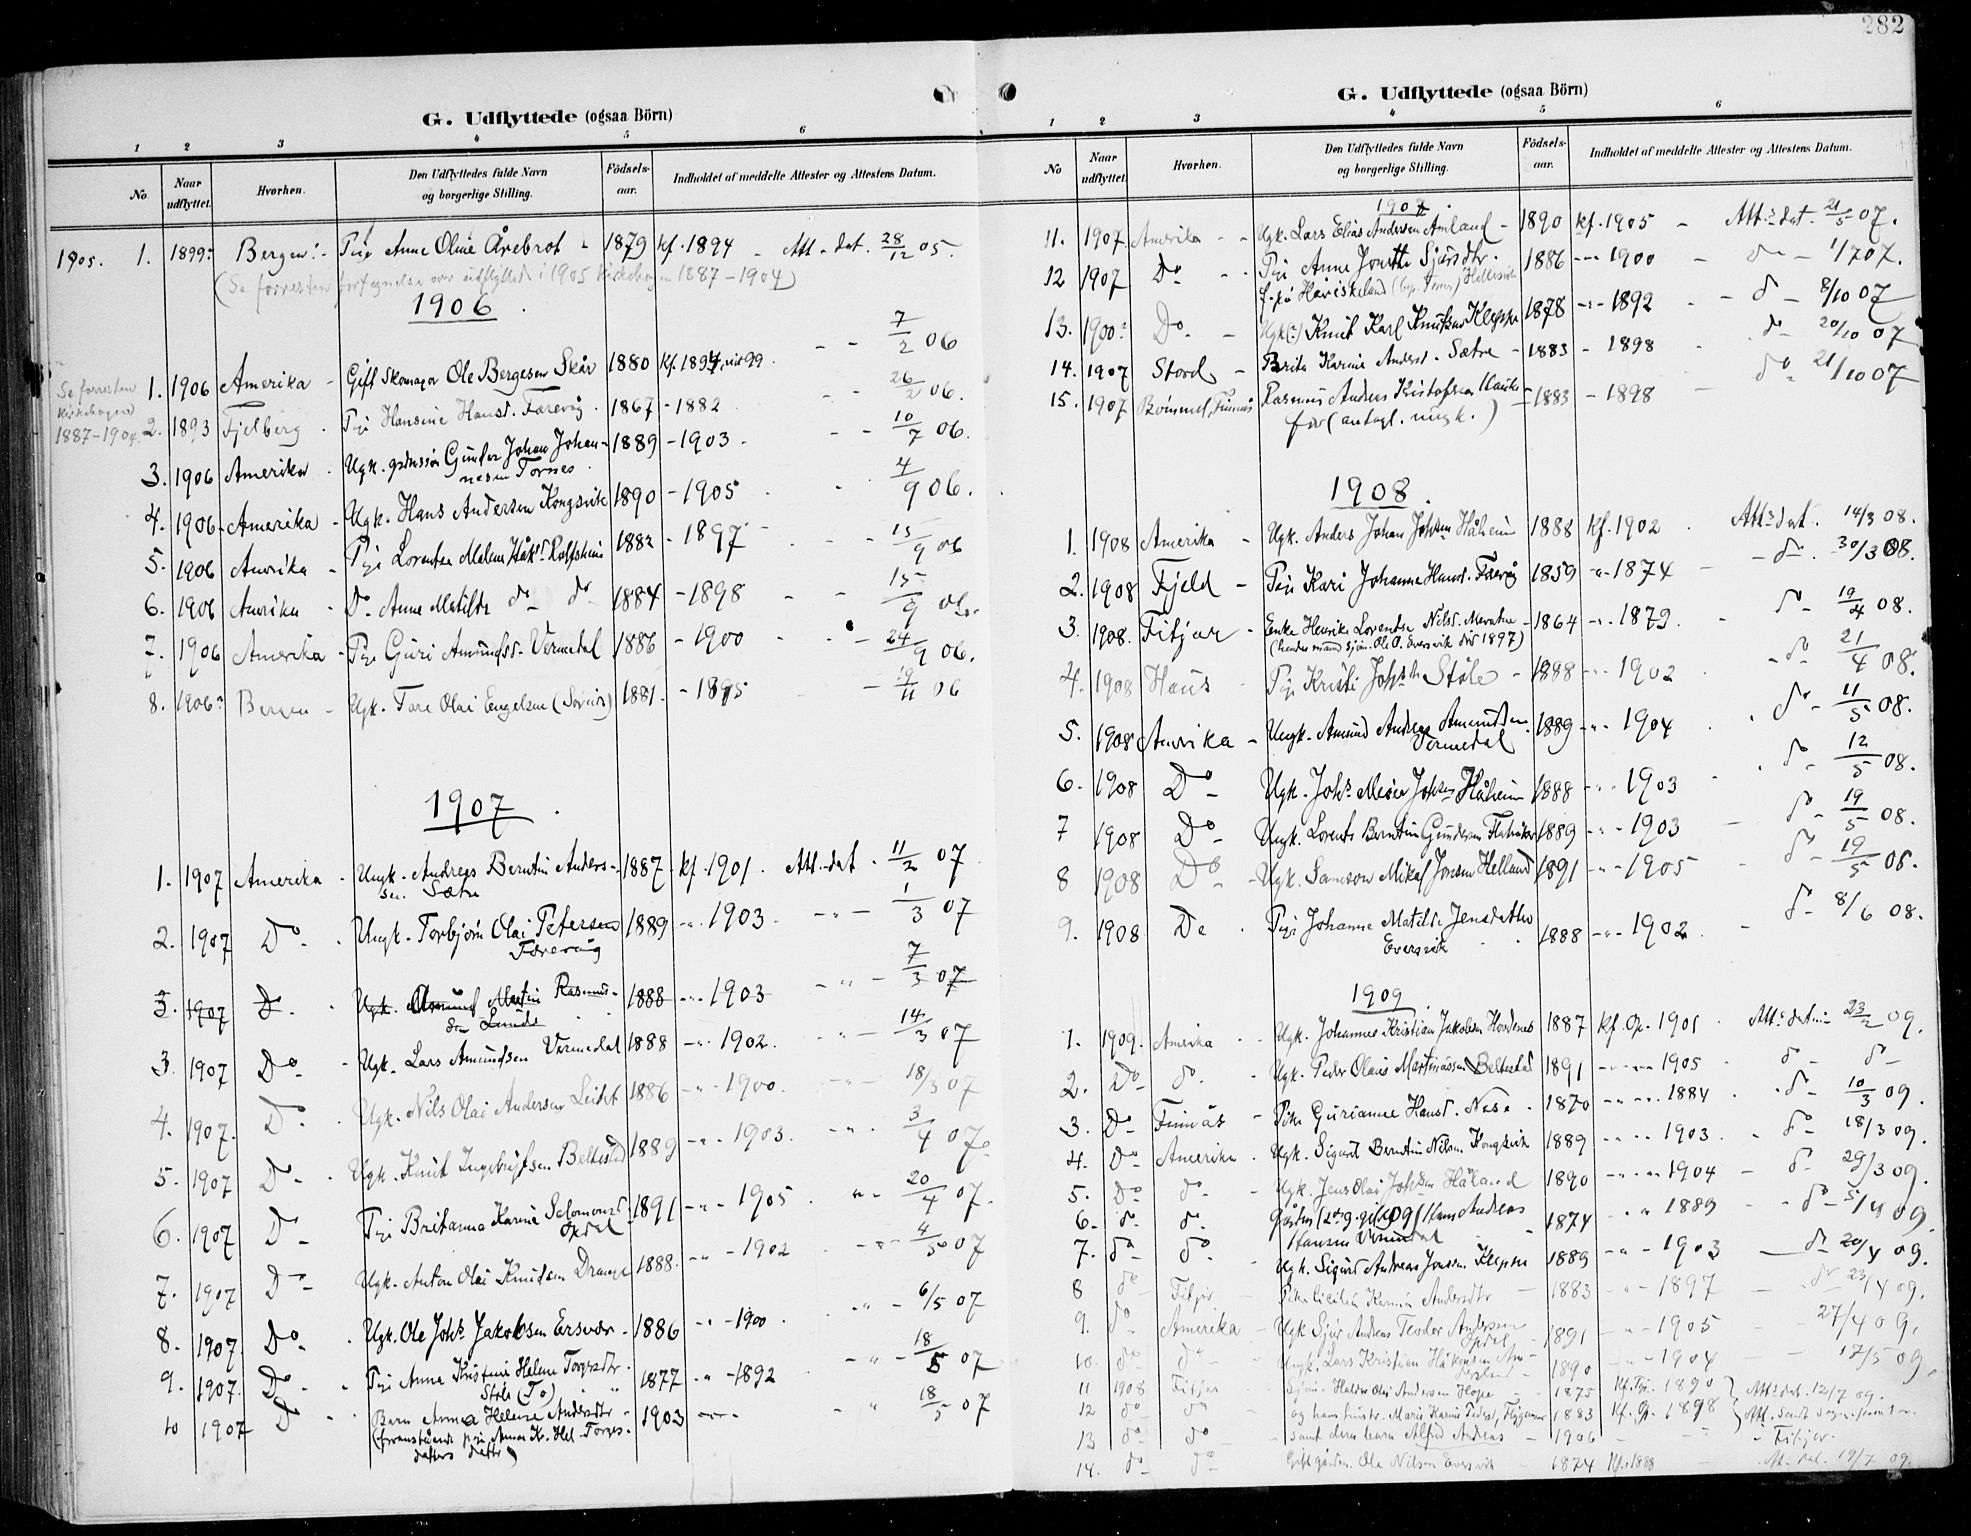 282
G. Udflyttede (ogsaa Börn)
1 2 3 4 5 6
No. Naar udflyttet. Hvorhen. Den Udflyttedes fulde Navn og borgerlige Stilling. Födselsaar. Indholdet af meddelte Attester og Attestens Datum.
1905. 1. 1899: Bergen: - Pige Anne Oline Årebrot - 1879 Kf. 1894 - Att. dat. 28/12 05.
(Se forresten fortegnelse over udflyttede i 1905 Kirkebogen 1887-1904)
1906.
Se forresten kirkebogen 1887-1904.
1. 1906 Amerika - Gift Skomager Ole Bergesen Skår 1880 Kf. 1894, 99 - - 7/2 06
2. 1893 Fjelberg - Pige Hansine Hansd. Færevåg 1867 - 1882 - - 26/2 06.
3. 1906 Amerika - Ugk. Gunder Johan Johannesen Tornes 1889 - 1903. - - 10/7 06.
4. 1906 - Amerika - Ugk. Hans Andersen Kongsvik 1890 - 1905 - - 4/9 06.
5. 1906 Amerika - Pige Lorentse Malene Rolfsnes 1882 - 1897 - - 15/9 06
6. 1906 Amerika - Do. Anne Matilde do do 1884 - 1898 - - 15/9 06.
7. 1906 Amerika - Pige Guri Amundsd. Vermedal 1886 - 1900 - - 24/9 06.
8. 1906: Bergen - Ugk. Tore Olai Engelsen 1881 - 1895 - 19/11 06
1907.
1. 1907 Amerika - Ungk. Andreas Berntin Andersen Sætre 1887 - Kf. 1901. Att. dat. 11/2 07
2. 1907 Do. - Ungk. Torbjörn Olai Petersen Færevåg 1889 - " - 1903. - " - 1/3 07
3. 1907 Do. - Ugk. Amund Martin Rasmussen Lunde 1888 - " - 1903 - " - 7/3 07
3. 1907 Do. - Ugk. Lars Amundsen Vermedal 1888 - " - 1902. - " - 14/3 07
4. 1907. Do. - Ugk. Nils Olai Andersen 1886 - " - 1900. - " - 18/3 07
5. 1907 Do. - Ugk. Knut Ingebrigtsen Beltestad 1889 - " - 1903. - " - 3/4 07.
6. 1907 Do. - Pige Britanna Karine Salomonsd. Opdal 1891 - " - 1905. - " - 20/4 07.
7. 1907 Do. - Ugk. Anton Olai Knudsen Drange 1888. - " - 1902 - " - 4/5 07
8. 1907. Do. - Ugk. Ole Johs. Jakobsen Ersvær - 1886 - " - 1900 - " - 6/5 07
9. 1907. Do. - Pige Anne Kristine Helene Torgesdtr. Støle 1877 - " - 1892 - " - 18/5 07
10 1907 Do - Barn Anna Helene Andersdtr. - 1903 - " - 18/5 07
(foranstående pige Anne Kr. Hel. Torgesdatters datter)
G. Udflyttede (ogsaa Börn)
1 2 3 4 5 6
No Naar udflyttet. Hvorhen. Den Udflyttedes fulde Navn og borgerlige Stilling. Födselsaar. Indholdet af meddelte Attester og Attestens Datum.
1907.
11. 1907 Amerika - Ugk. Lars Elias Andersen Amland - 1890 Kf. 1905 - Att. dat. 21/5 07.
12 1907 Do. - Pige Anne Jonette Sjursdtr. 1886 - " - 1900 - Do - 1/7 07.
13. 1900: Do. - Knut Karl Knutsen Kleppe 1878 - " - 1892 - do - 8/10 07
14. 1907 Stord - Brita Karine Andersd. Sætre - 1883 - 1898 - do - 20/10 07
15. 1907 Bömmel, Finnås Rasmus Andreas Kristofersen - 1883 - 1898 - do - 21/10 07
(antagl. ungk.)
1908.
1. 1908 Amerika - Ugk. Anders Johan Johsen Håheim 1888 Kf. 1902 Att. dat. 14/3 08.
2. 1908 Fjeld - Pige Kari Johanne Hansd. Færevåg 1859 - " - 1874 - do - 30/3 08.
3. 1908. Fitjar - Enke Henrike Lorentse Nilsd. - 1864 - " - 1879. - do - 19/4 08.
(hendes mand Ole O. Eversvik död 1897)
4. 1908 Haus Pige Kristi Johsdtr. Støle - 1888 - " - 1902 - do - 21/4 08.
5. 1908 Amerika - Ungk. Amund Andreas Amundsen Vermedal 1889 - " - 1904 - do - 11/5 08.
6. 1908 Do - Ugk. Johs. Johsen Håheim 1888 - " - 1903 - do - 12/5 08.
7 1908 Do - Ungk. Lorents Berntin Gundersen 1889 - " - 1903 - do - 19/5 08.
8 1908 Do - Ugk. Samson Mikal Jonsen Helland 1891 - " - 1905 - do - 19/5 08.
9. 1908 Do - Pige Johanne Matilde Jensdatter Eversvik 1888 - " - 1902. - do - 8/6 08.
1909.
1. 1909. Amerika - Ugk. Johannes Kristian Jakobsen Hordenes 1887 Kf. Op. 1901 Att. dat. 23/2 09.
2. Do do. - Ugk. Peder Olaus Martinussen Beltestad 1891 - " - 1905 - do - do -
3. Do - Finnås - Pike Gurianne Hansd. Nese. 1870 - " - 1884 - do - 10/3 09.
4. Do - Amerika - Ugk. Sigurd Berntin Nilsen Kongsvik 1889 - " - 1903. - do - 18/3 09.
5. Do - do. - Ugk. Jens Olai Johsen Håland 1890 - " - 1904 - do - 29/3 09.
6. do - do. Hans Andreas Hansen Vermedal 1874 " " 1889 - do - 5/4 09.
7. do - do. Ugk. Sigurd Andreas Jonsen Kleppe 1889 - " - 1903 - do - 20/4 09.
8 do - Fitjar - Pike Cecilia Karine Andersdtr 1883 " - 1897 - do - 23/4 09.
9. do - Amerika - Ugk. Sjur Andreas Teodor Andersen Opdal - 1891 - " - 1905 - - 27/4 09.
10. do - do - Ungk. Lars Kristian Håkonsen - 1890 - 1904 - 17/5 09.
11 1908 Fitjar - Halder Olai Andersen Hope - 1875 Kf. 1890 } Att. dat. 12/7 09.
12 do - do - og hans hustr. Marie Karine Pedersd. 1883 Kf. Op. 1898 } Att. sendt
13 do - do - samt dem barn Alfred Andreas - 1906 - - Fitjar.
14. do - do - Gift gårdm. Ole Nilsen Eversvik - 1874 Kf. 1888 - Att. dat. 19/7 09.